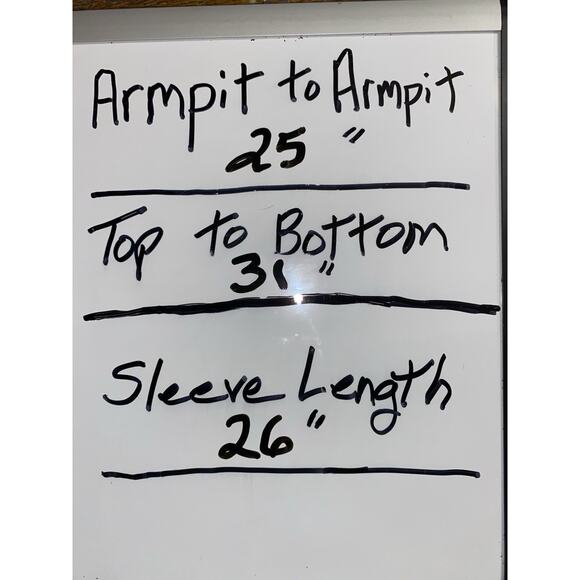 Armpit to Armpit
25"
Top to Bottom
31"
Sleeve Length
26"